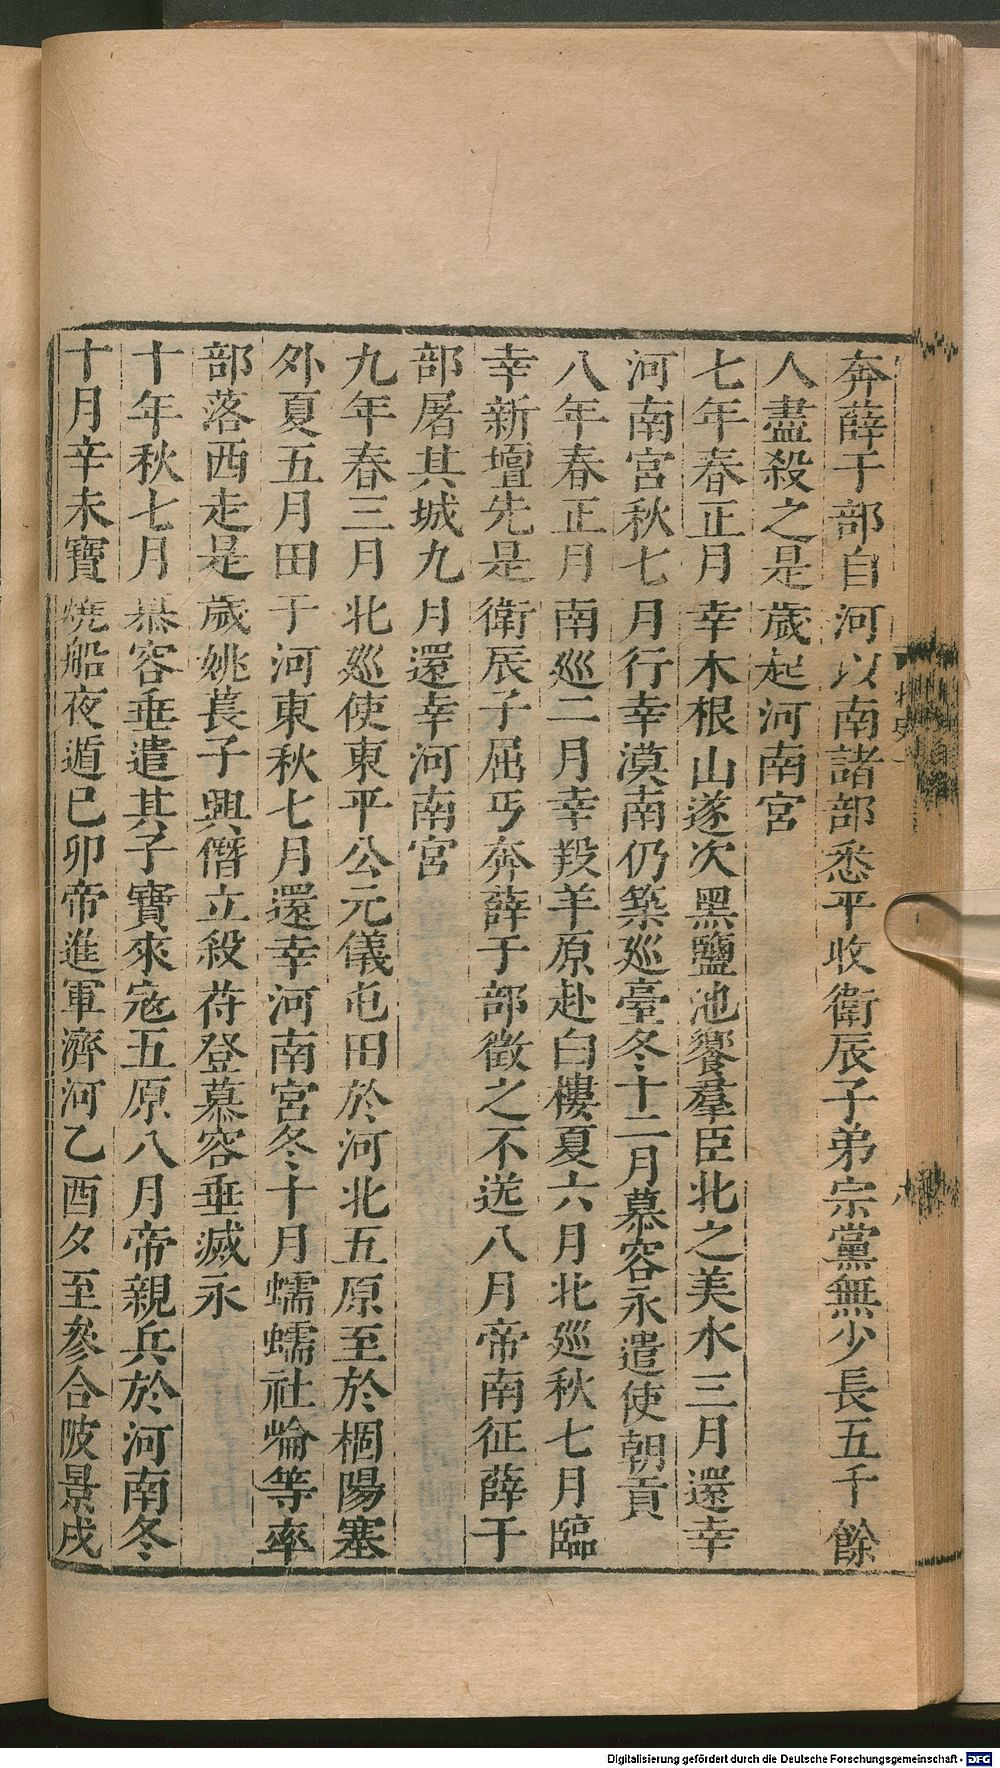 奔薛干部自河以南諸部悉平收衛辰子弟宗黨無少長五千餘
人盡殺之是歲起河南宮
七年春正月幸木根山遂次黑鹽池饗羣臣北之美水三月還幸
河南宮秋七月行幸漠南仍築巡臺冬十二月慕容永遣使朝貢
八年春正月南巡二月幸羖羊原赴白樓夏六月北巡秋七月臨
幸新壇先是衛辰子屈丐奔薛于部徵之不送八月帝南征薛于
部屠其城九月還幸河南宮
九年春三月北巡使東平公元儀屯田於河北五原至於棝陽塞
外夏五月田于河東秋七月還幸河南宮冬十月蠕蠕社崘等率
部落西走是歲姚萇子興僭立殺苻登慕容垂滅永
十年秋七月慕容垂遣其子寶來寇五原八月帝親兵於河南冬
十月辛未寶燒船夜遁已卯帝進軍濟河乙酉夕至參合陂景戌
北史一
八
Digitalisierung gefördert durch die Deutsche Forschungsgemeinschaft - DFG